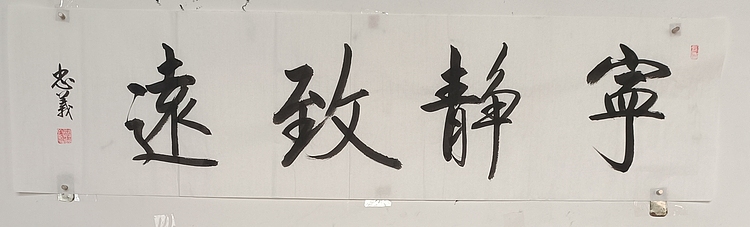 寧静致遠
忠義